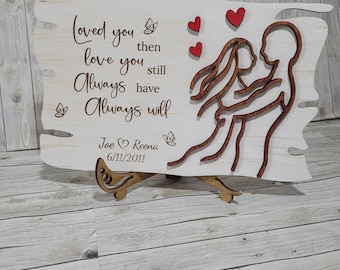 Loved you then
love you still
Always have
Always will
Joe ♡ Reena
6/11/2011